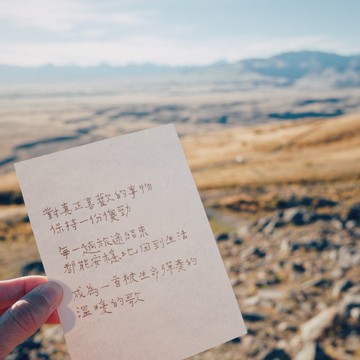 對真正喜歡的事物
保持一份傻勁
每一趟旅途結束
都能安穩地回到生活
成為一首被生命彈奏的
溫暖的歌